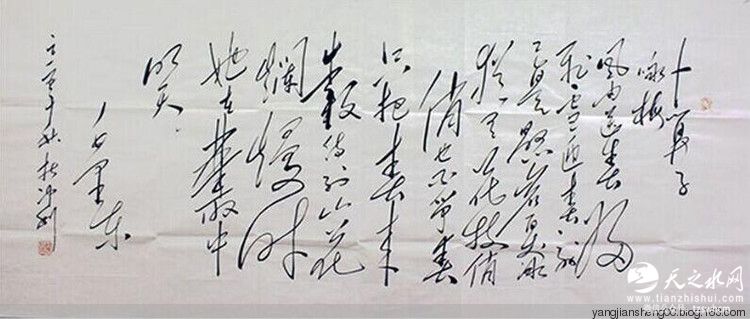 卜算子
咏梅
风雨送春归
飞雪迎春到
已是悬岩百丈冰
犹有花枝俏
俏也不争春
只把春来
报待到山花
烂漫时
她在丛中
笑
毛泽东
天之水网
www.tianzhishui.com
yangjiansheng00.blog.163.com